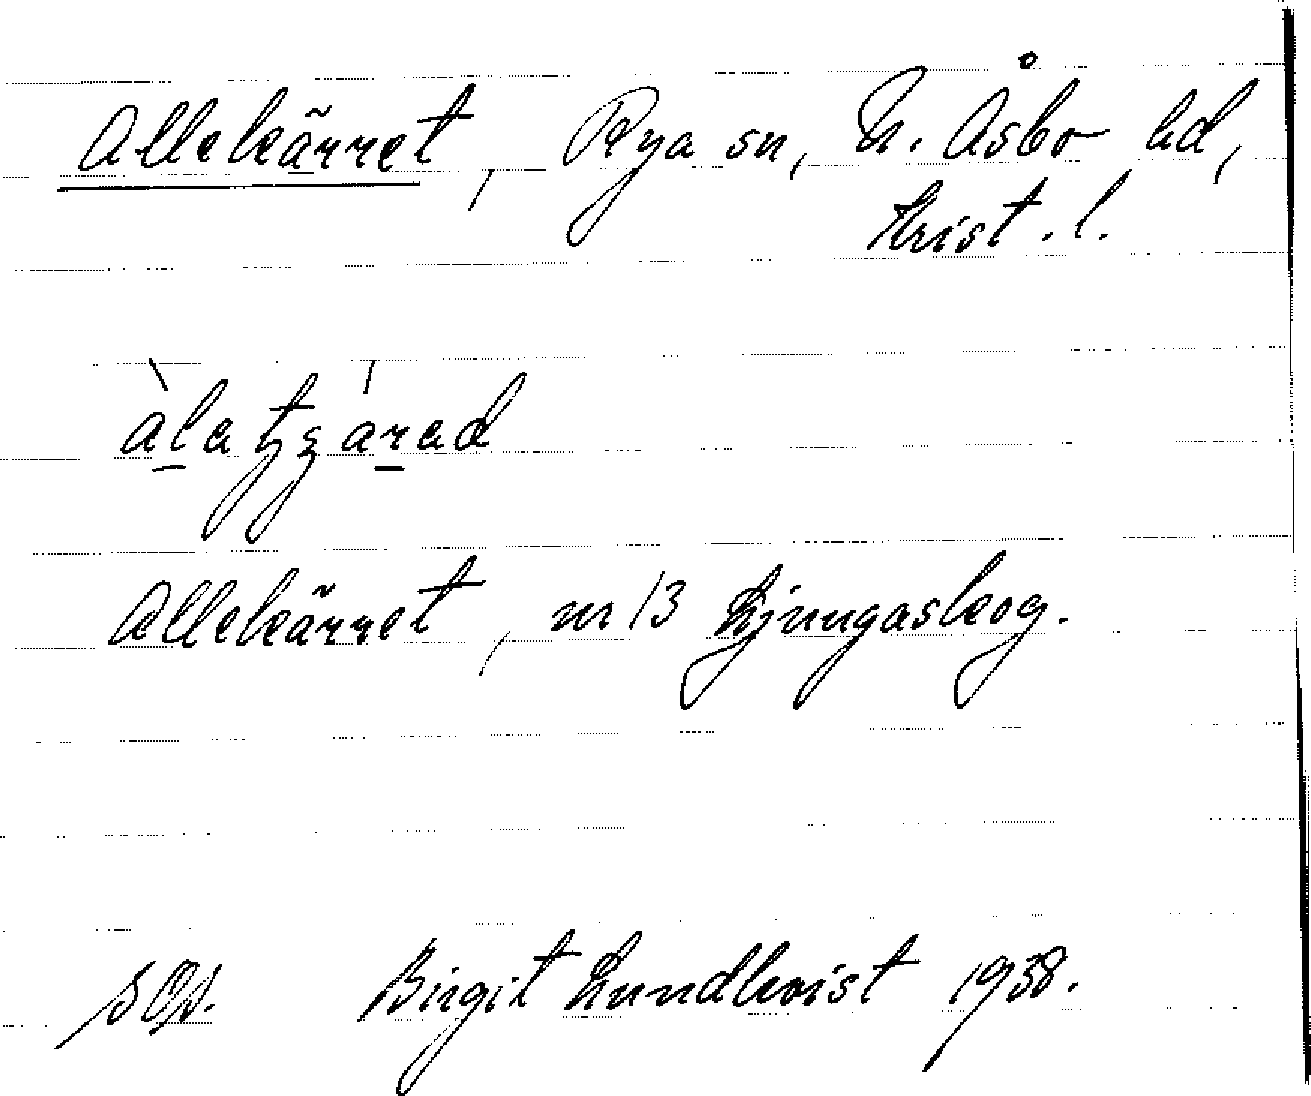 Allekärret, Rya sn, N. Åsbo hd,
Krist. l.
Allekärret, nr 13 Ljungaskog.
Birgit Lundkvist 1938.